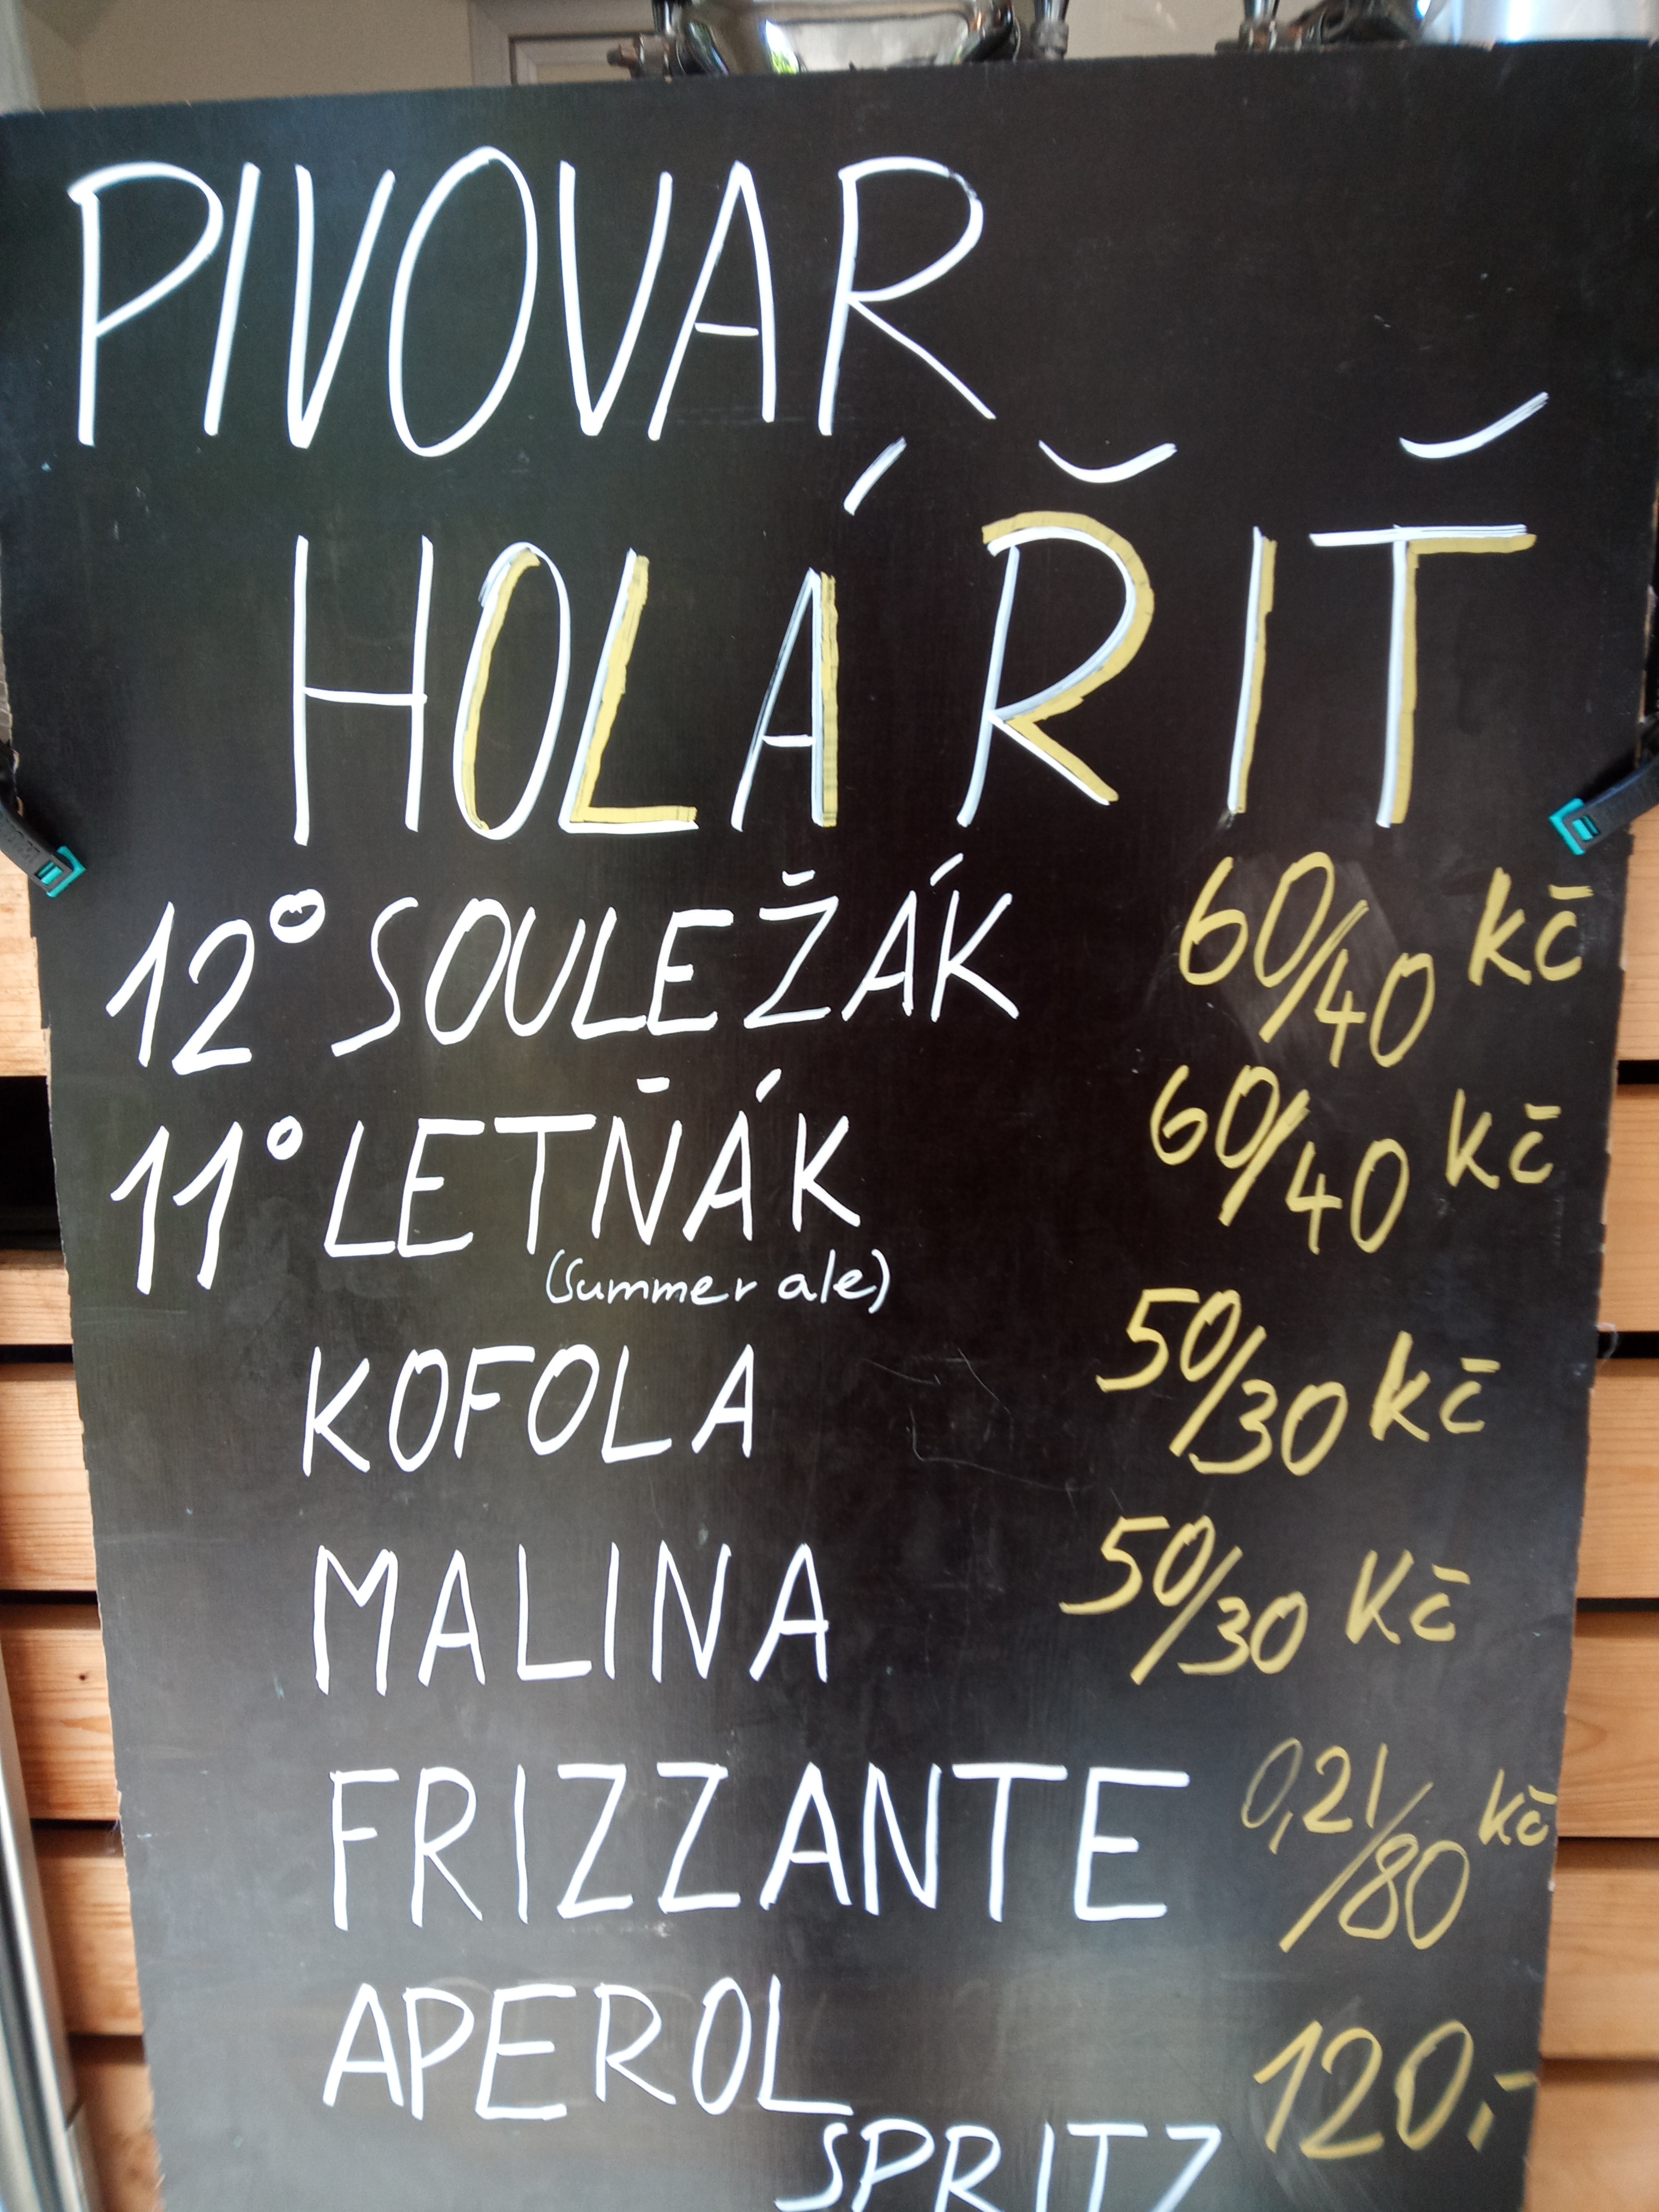 PIVOVAR
HOLÁ ŘIŤ
12° SOULEŽÁK 60/40 Kč
11° LETŇÁK 60/40 Kč
(Summer ale)
KOFOLA 50/30 Kč
MALINA 50/30 Kč
FRIZZANTE 0,2l/80 Kč
APEROL 120,-
SPRITZ